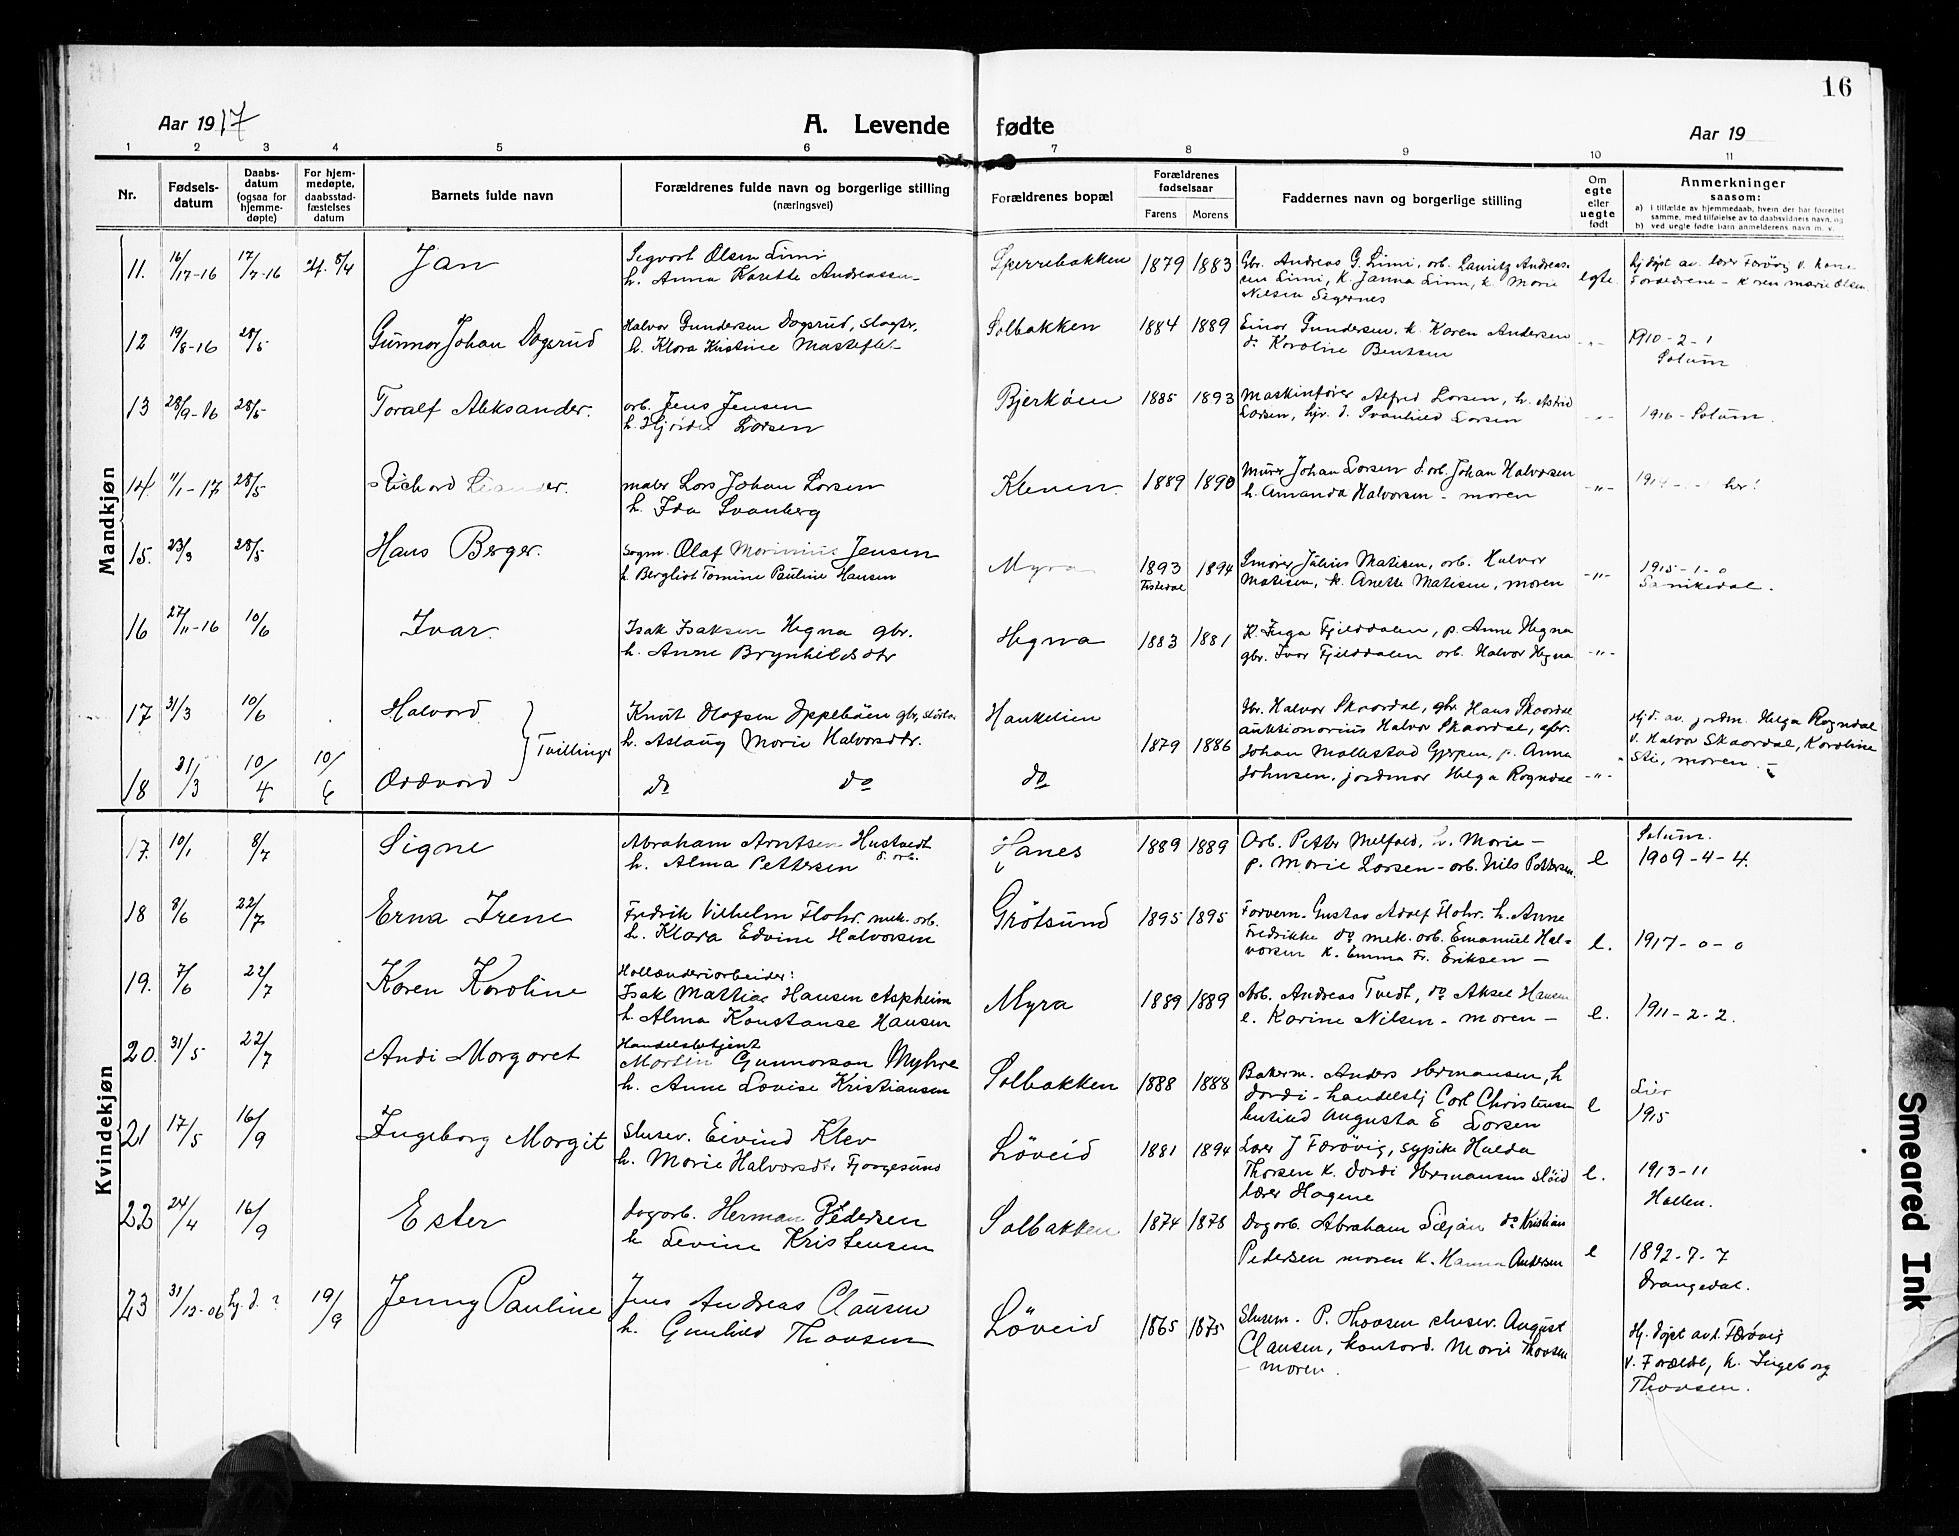 16
Aar 1917
A. Levende fødte
Aar 19
1 2 3 4 5 6 7 8 9 10 11
Nr.
Fødsels-
datum
Daabs-
datum
(ogsaa for
hjemme-
døpte)
For hjem-
medøpte,
daabsstad-
fæstelses
datum
Barnets fulde navn
Forældrenes fulde navn og borgerlige stilling
(næringsvei)
Forældrenes bopæl
Forældrenes
fødselsaar
Farens Morens
Faddernes navn og borgerlige stilling
Om
egte
eller
uegte
født
Anmerkninger
saasom:
a) i tilfælde av hjemmedaab, hvem der har forrettet
samme, med tilføielse av to daabsvidners navn, og
b) ved uegte fødte barn anmelderens navn m. v.
Mandkjøn
11. 16/17-16 17/7-16 Jan
Segvart Olsen Limi
h. Anna Karette Andreassen
Sperrebakken 1879 1883
Gbr. Andreas G. Limi, arb. Lauritz Andreas-
sen Limi, k. Janna Limi, k. Marie
Nilsen Segernes
egte
hj. døpt av lærer Farövig v.
Forældrene - Karen Marie Olsen
12 19/8-16 28/5 Gunnar Johan Dagsrud
Halvor Gundersen Dagsrud, slagtr.
h. Klara Kristine
Solbakken 1884 1889
Einar Gundersen, k. Karen Andersen
d. Karoline Bentsen
-"-
1910-2-1
Solum
13 28/9-16 28/5 Toralf Aleksander.
arb. Jens Jensen
h. Hjördis Larsen
Bjerköen 1885 1893
Maskinfører Alfred Larsen, h. Astrid
Larsen, hjv. d. Svanhild Larsen
-"-
1916 - Solum.
14. 11/1-17 28/5 Richard
maler Lars Johan Larsen
h. Ida Svanberg
Kleven. 1889 1890
Murer Johan Larsen d. arb. Johan Halvorsen
h. Amanda Halvorsen - moren
-"-
her!
15. 23/3 28/5 Hans Berger.
sagm. Olaf Marinius Jensen
h. Bergliot Tomine Pauline Hansen
Myra 1893 1894
Fistedal
Smører Julius Matisen, arb. Halvor
Matisen, k. Anette Matisen, moren
-"-
1915-1-0
Sanikedal.
16 27/11-16 10/6 Ivar.
Isak Isaksen Hegna gbr.
h. Anne Brynhildsdtr
Hegna 1883 1881
K. Inga Fjelddalen, p. Anne Hegna
gbr. Ivar Fjelddalen arb. Halvor Hegna
-"-
17 31/3 10/6 Halvard
Tvillinger
Knut Olafsen Eppeböen gbr.
h. Aslaug Marie Halvorsdtr.
Haukelien
1879 1886
Gbr. Halvor Skaardal, gbr Hans Skaardal
auktionarius Halvor Skaardal, gbr.
Johan Mallestad Gjerpen, p. Anna
Johnsen, jordmor Helga Rogndal
-"-
Hj.d. av jordm. Helga Rogndal
v. Halvor Skaardal, Karoline
Sti, moren.
18 31/3 10/4 10/6 Oddvard
do do
do
Kvindekjøn
17. 10/1 8/7 Signe
Abraham Arntsen Hustvedt
h. Alma Pettersen
Hanes 1889 1889
Arb. Petter Melfald, h. Marie -
p. Marie Larsen - arb. Nils Pettersen.
e
Solum.
1909-4-4.
18 8/6 22/7 Erna Irene
Fredrik Vilhelm Flohr. mek. arb.
h. Klara Edvine Halvorsen
Grötsund 1895 1895
Farverm. Gustav Adolf Flohr. h. Anne
Fredrikke do mek. arb. Emanuel Hal-
vorsen k. Emma Fr. Eriksen -
e.
1917-0-0
19. 7/6 22/7 Karen Karoline
Hollænderiarbeider:
Isak Mattias Hansen Aspheim
h. Alma Konstanse Hansen
Myra 1889 1889
Arb. Andreas Tvedt, do Aksel Hansen
e. Karine Nilsen - moren -
e.
1911-2-2.
20. 31/5 22/7 Andi Margaret
Handelsbetjent
Martin Gunnarson Myhre
h. Anne Lovise Kristiansen
Solbakken 1888 1888
Bakerm. Anders Hermansen, h
Dordi - handelsbtj Carl Christensen
Augusta E Larsen
e
Lier
1915
21 17/5 16/9 Ingeborg Margit
Slusev. Eivind Klev
h. Marie Halvorsdtr Fjoogesund
Löveid 1881 1894
Lærer J Farövig, sypike Hulda
Thorsen k. Dordi Hermansen sløid
lærer Hagene
e.
1913-11
Hallen.
22 24/4 16/9 Ester
dagarb. Herman Pedersen
h Levine Kristensen
Solbakken 1874 1878
Dagarb. Abraham Siljan do Kristian
Pedersen moren k. Hanna Andersen
e
1892-7-7
Drangedal.
23 31/12-06 hj. d. ? 19/9 Jenny Pauline
Jens Andreas Clausen
h. Gunhild Thovsen
Löveid 1865 1875
Slusem. P. Thovsen slusev. August
Clausen, kontord. Marie Thovsen
- moren.
Hj. døpt av l. Farövig
v. Foræld., k. Ingeborg
Thovsen.
Smeared Ink